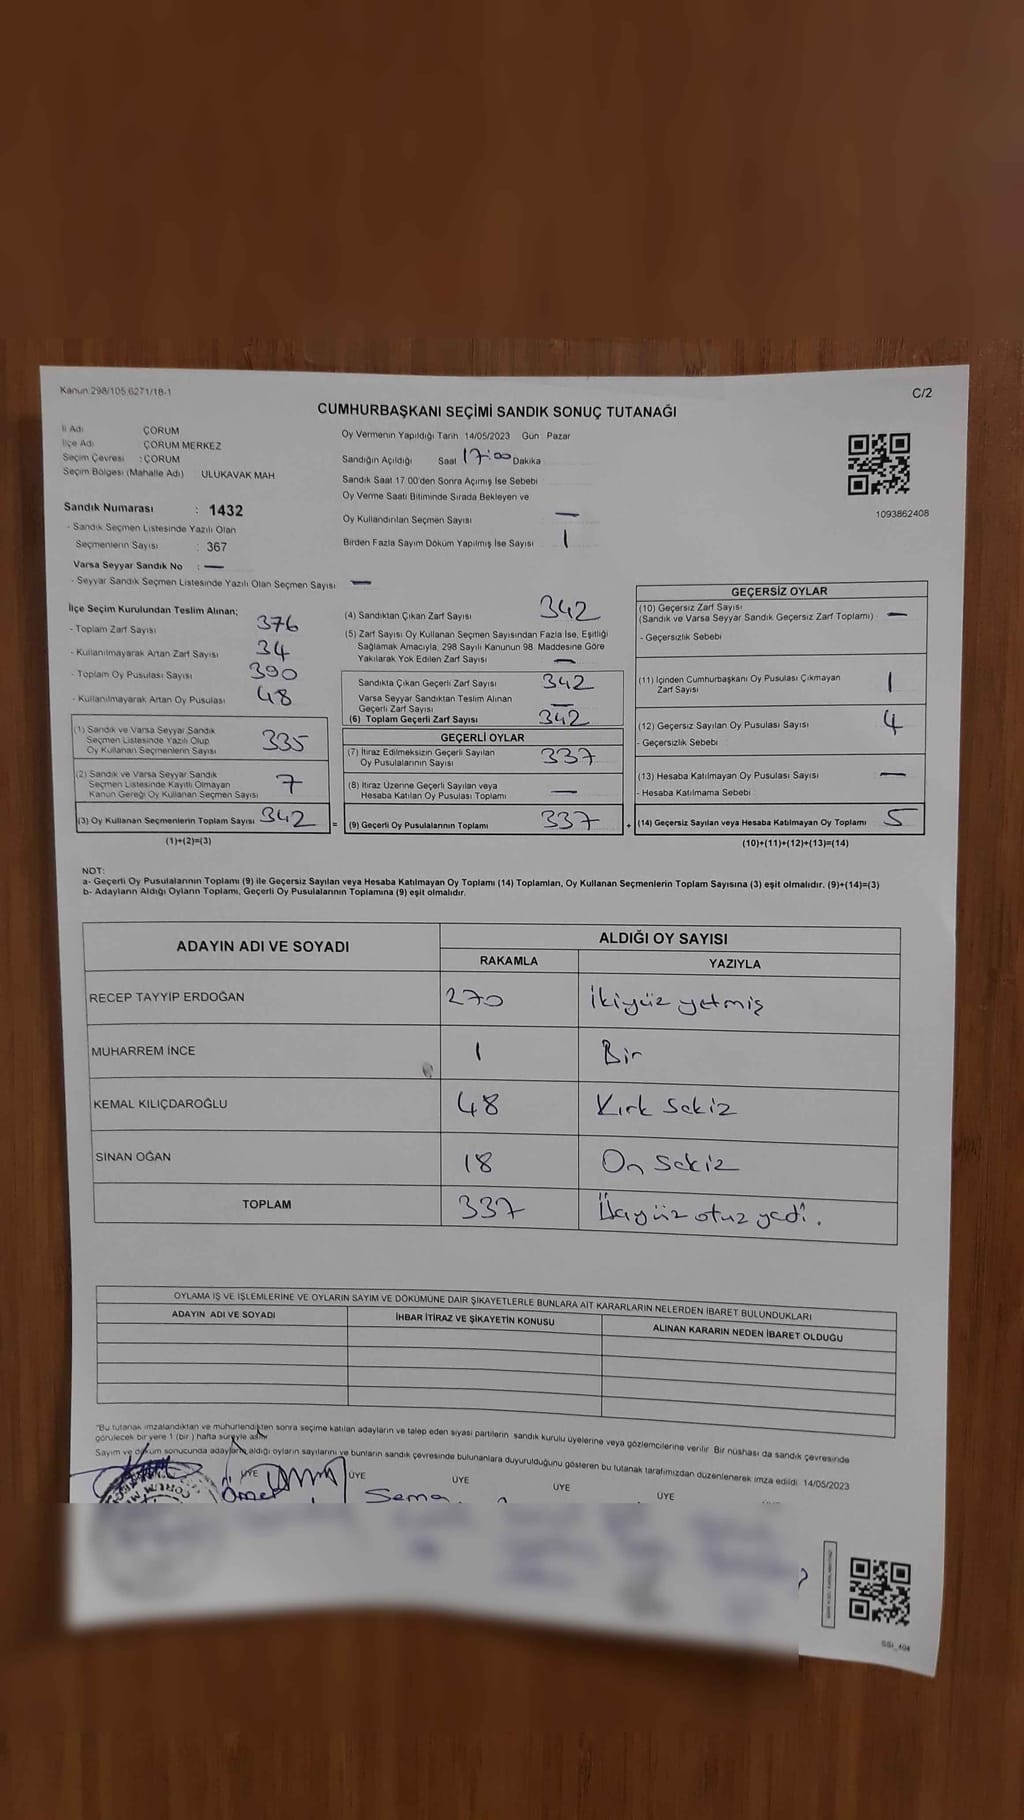 Kanun:298/105,6271/18-1
C/2
CUMHURBAŞKANI SEÇİMİ SANDIK SONUÇ TUTANAĞI
İl Adı ÇORUM
İlçe Adı ÇORUM MERKEZ
Seçim Çevresi : ÇORUM
Seçim Bölgesi (Mahalle Adı) ULUKAVAK MAH
Sandık Numarası : 1432
- Sandık Seçmen Listesinde Yazılı Olan
Seçmenlerin Sayısı : 367
Varsa Seyyar Sandık No : —
- Seyyar Sandık Seçmen Listesinde Yazılı Olan Seçmen Sayısı —
Oy Vermenin Yapıldığı Tarih 14/05/2023 Gün Pazar
Sandığın Açıldığı Saat 17:00 Dakika
Sandık Saat 17:00'den Sonra Açımış İse Sebebi
Oy Verme Saati Bitiminde Sırada Bekleyen ve
Oy Kullandırılan Seçmen Sayısı —
Birden Fazla Sayım Döküm Yapılmış İse Sayısı 1
1093862408
İlçe Seçim Kurulundan Teslim Alınan;
- Toplam Zarf Sayısı 376
- Kullanılmayarak Artan Zarf Sayısı 34
- Toplam Oy Pusulası Sayısı 390
- Kullanılmayarak Artan Oy Pusulası 48
(1) Sandık ve Varsa Seyyar Sandık
Seçmen Listesinde Yazılı Olup
Oy Kullanan Seçmenlerin Sayısı 335
(2) Sandık ve Varsa Seyyar Sandık
Seçmen Listesinde Kayıtlı Olmayan
Kanun Gereği Oy Kullanan Seçmen Sayısı 7
(3) Oy Kullanan Seçmenlerin Toplam Sayısı 342 =
(1)+(2)=(3)
(4) Sandıktan Çıkan Zarf Sayısı 342
(5) Zarf Sayısı Oy Kullanan Seçmen Sayısından Fazla İse, Eşitliği
Sağlamak Amacıyla, 298 Sayılı Kanunun 98. Maddesine Göre
Yakılarak Yok Edilen Zarf Sayısı —
Sandıkta Çıkan Geçerli Zarf Sayısı 342
Varsa Seyyar Sandıktan Teslim Alınan
Geçerli Zarf Sayısı —
(6) Toplam Geçerli Zarf Sayısı 342
GEÇERLİ OYLAR
(7) İtiraz Edilmeksizin Geçerli Sayılan
Oy Pusulalarının Sayısı 337
(8) İtiraz Üzerine Geçerli Sayılan veya
Hesaba Katılan Oy Pusulası Toplamı —
(9) Geçerli Oy Pusulalarının Toplamı 337 +
GEÇERSİZ OYLAR
(10) Geçersiz Zarf Sayısı
(Sandık ve Varsa Seyyar Sandık Geçersiz Zarf Toplamı) —
- Geçersizlik Sebebi
(11) İçinden Cumhurbaşkanı Oy Pusulası Çıkmayan
Zarf Sayısı 1
(12) Geçersiz Sayılan Oy Pusulası Sayısı 4
- Geçersizlik Sebebi
(13) Hesaba Katılmayan Oy Pusulası Sayısı —
- Hesaba Katılmama Sebebi
(14) Geçersiz Sayılan veya Hesaba Katılmayan Oy Toplamı 5
(10)+(11)+(12)+(13)=(14)
NOT:
a- Geçerli Oy Pusulalarının Toplamı (9) ile Geçersiz Sayılan veya Hesaba Katılmayan Oy Toplamı (14) Toplamları, Oy Kullanan Seçmenlerin Toplam Sayısına (3) eşit olmalıdır. (9)+(14)=(3)
b- Adayların Aldığı Oyların Toplamı, Geçerli Oy Pusulalarının Toplamına (9) eşit olmalıdır.
ADAYIN ADI VE SOYADI
ALDIĞI OY SAYISI
RAKAMLA YAZIYLA
RECEP TAYYİP ERDOĞAN 270 İkiyüz yetmiş
MUHARREM İNCE 1 Bir
KEMAL KILIÇDAROĞLU 48 Kırk Sekiz
SİNAN OĞAN 18 On Sekiz
TOPLAM 337 Üçyüz otuz yedi.
OYLAMA İŞ VE İŞLEMLERİNE VE OYLARIN SAYIM VE DÖKÜMÜNE DAİR ŞİKAYETLERLE BUNLARA AİT KARARLARIN NELERDEN İBARET BULUNDUKLARI
ADAYIN ADI VE SOYADI İHBAR İTİRAZ VE ŞİKAYETİN KONUSU ALINAN KARARIN NEDEN İBARET OLDUĞU
"Bu tutanak imzalandıktan ve mühürlendikten sonra seçime katılan adayların ve talep eden siyasi partilerin sandık kurulu üyelerine veya gözlemcilerine verilir. Bir nüshası da sandık çevresinde
görülecek bir yere 1 (bir) hafta süreyle asılır
Sayım ve döküm sonucunda adayların aldığı oyların sayılarını ve bunların sandık çevresinde bulunanlara duyurulduğunu gösteren bu tutanak tarafımızdan düzenlenerek imza edildi. 14/05/2023
ÜYE ÜYE ÜYE ÜYE ÜYE
Ömer Sema
SSI_404